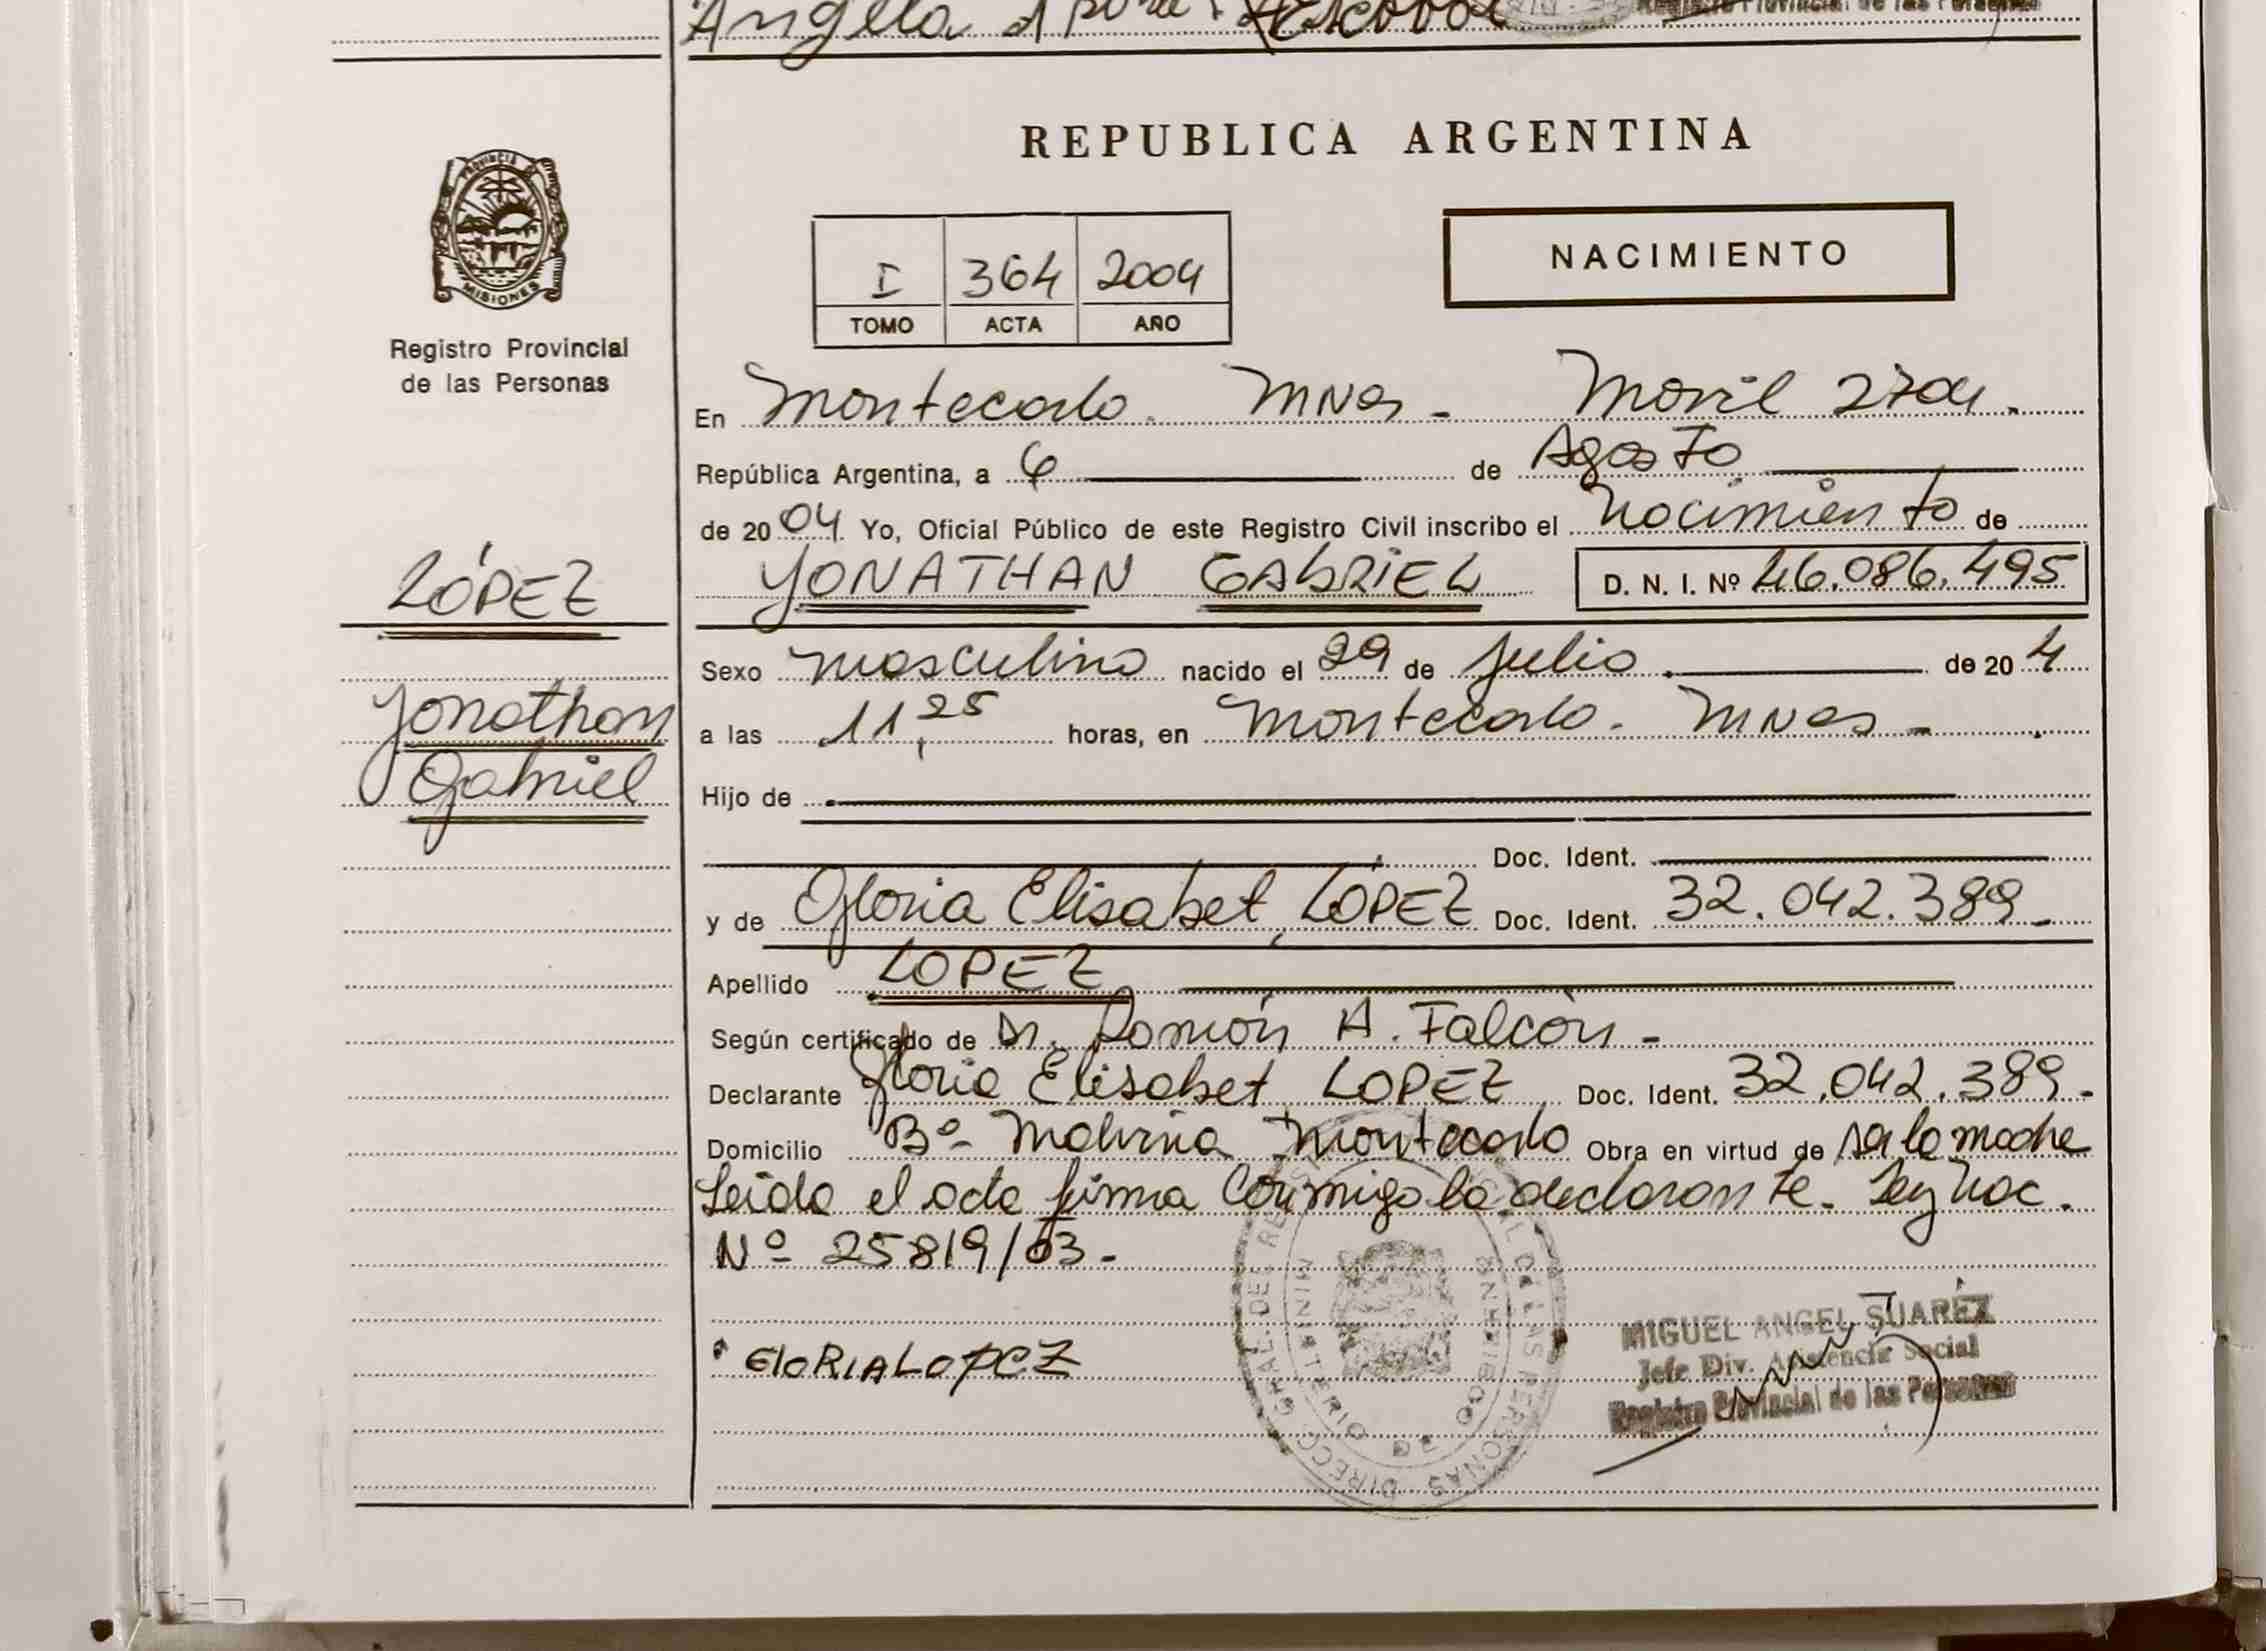 Angela Escobar
Registro Provincial de las Personas
PROVINCIA
MISIONES
Registro Provincial
de las Personas
REPUBLICA ARGENTINA
NACIMIENTO
I 364 2004
TOMO ACTA AÑO
En Montecarlo. Mnes - Movil 2704.
República Argentina, a 6 de Agosto
de 2004 Yo, Oficial Público de este Registro Civil inscribo el Nacimiento de
YONATHAN GABRIEL D. N. I. Nº 46.086.495
LÓPEZ
Yonathan
Gabriel
Sexo masculino nacido el 29 de Julio de 20 4
a las 11,25 horas, en Montecarlo - Mnes -
Hijo de
Doc. Ident.
y de Gloria Elisabet LÓPEZ Doc. Ident. 32.042.389-
Apellido LOPEZ
Según certificado de Dr. Ramón A. Falcón -
Declarante Gloria Elisabet LOPEZ Doc. Ident. 32.042.389-
Domicilio Bº Malvina Montecarlo Obra en virtud de ser la madre
Leída el acta firma conmigo la declarante. Ley Nac.
Nº 25819/03-
GloRIA LOPEZ
DIRECC. GRAL. DEL REGISTRO PROVINCIAL DE LAS PERSONAS
MINISTERIO DE GOBIERNO
MIGUEL ANGEL SUAREZ
Jefe Div. Asistencia Social
Registro Provincial de las Personas